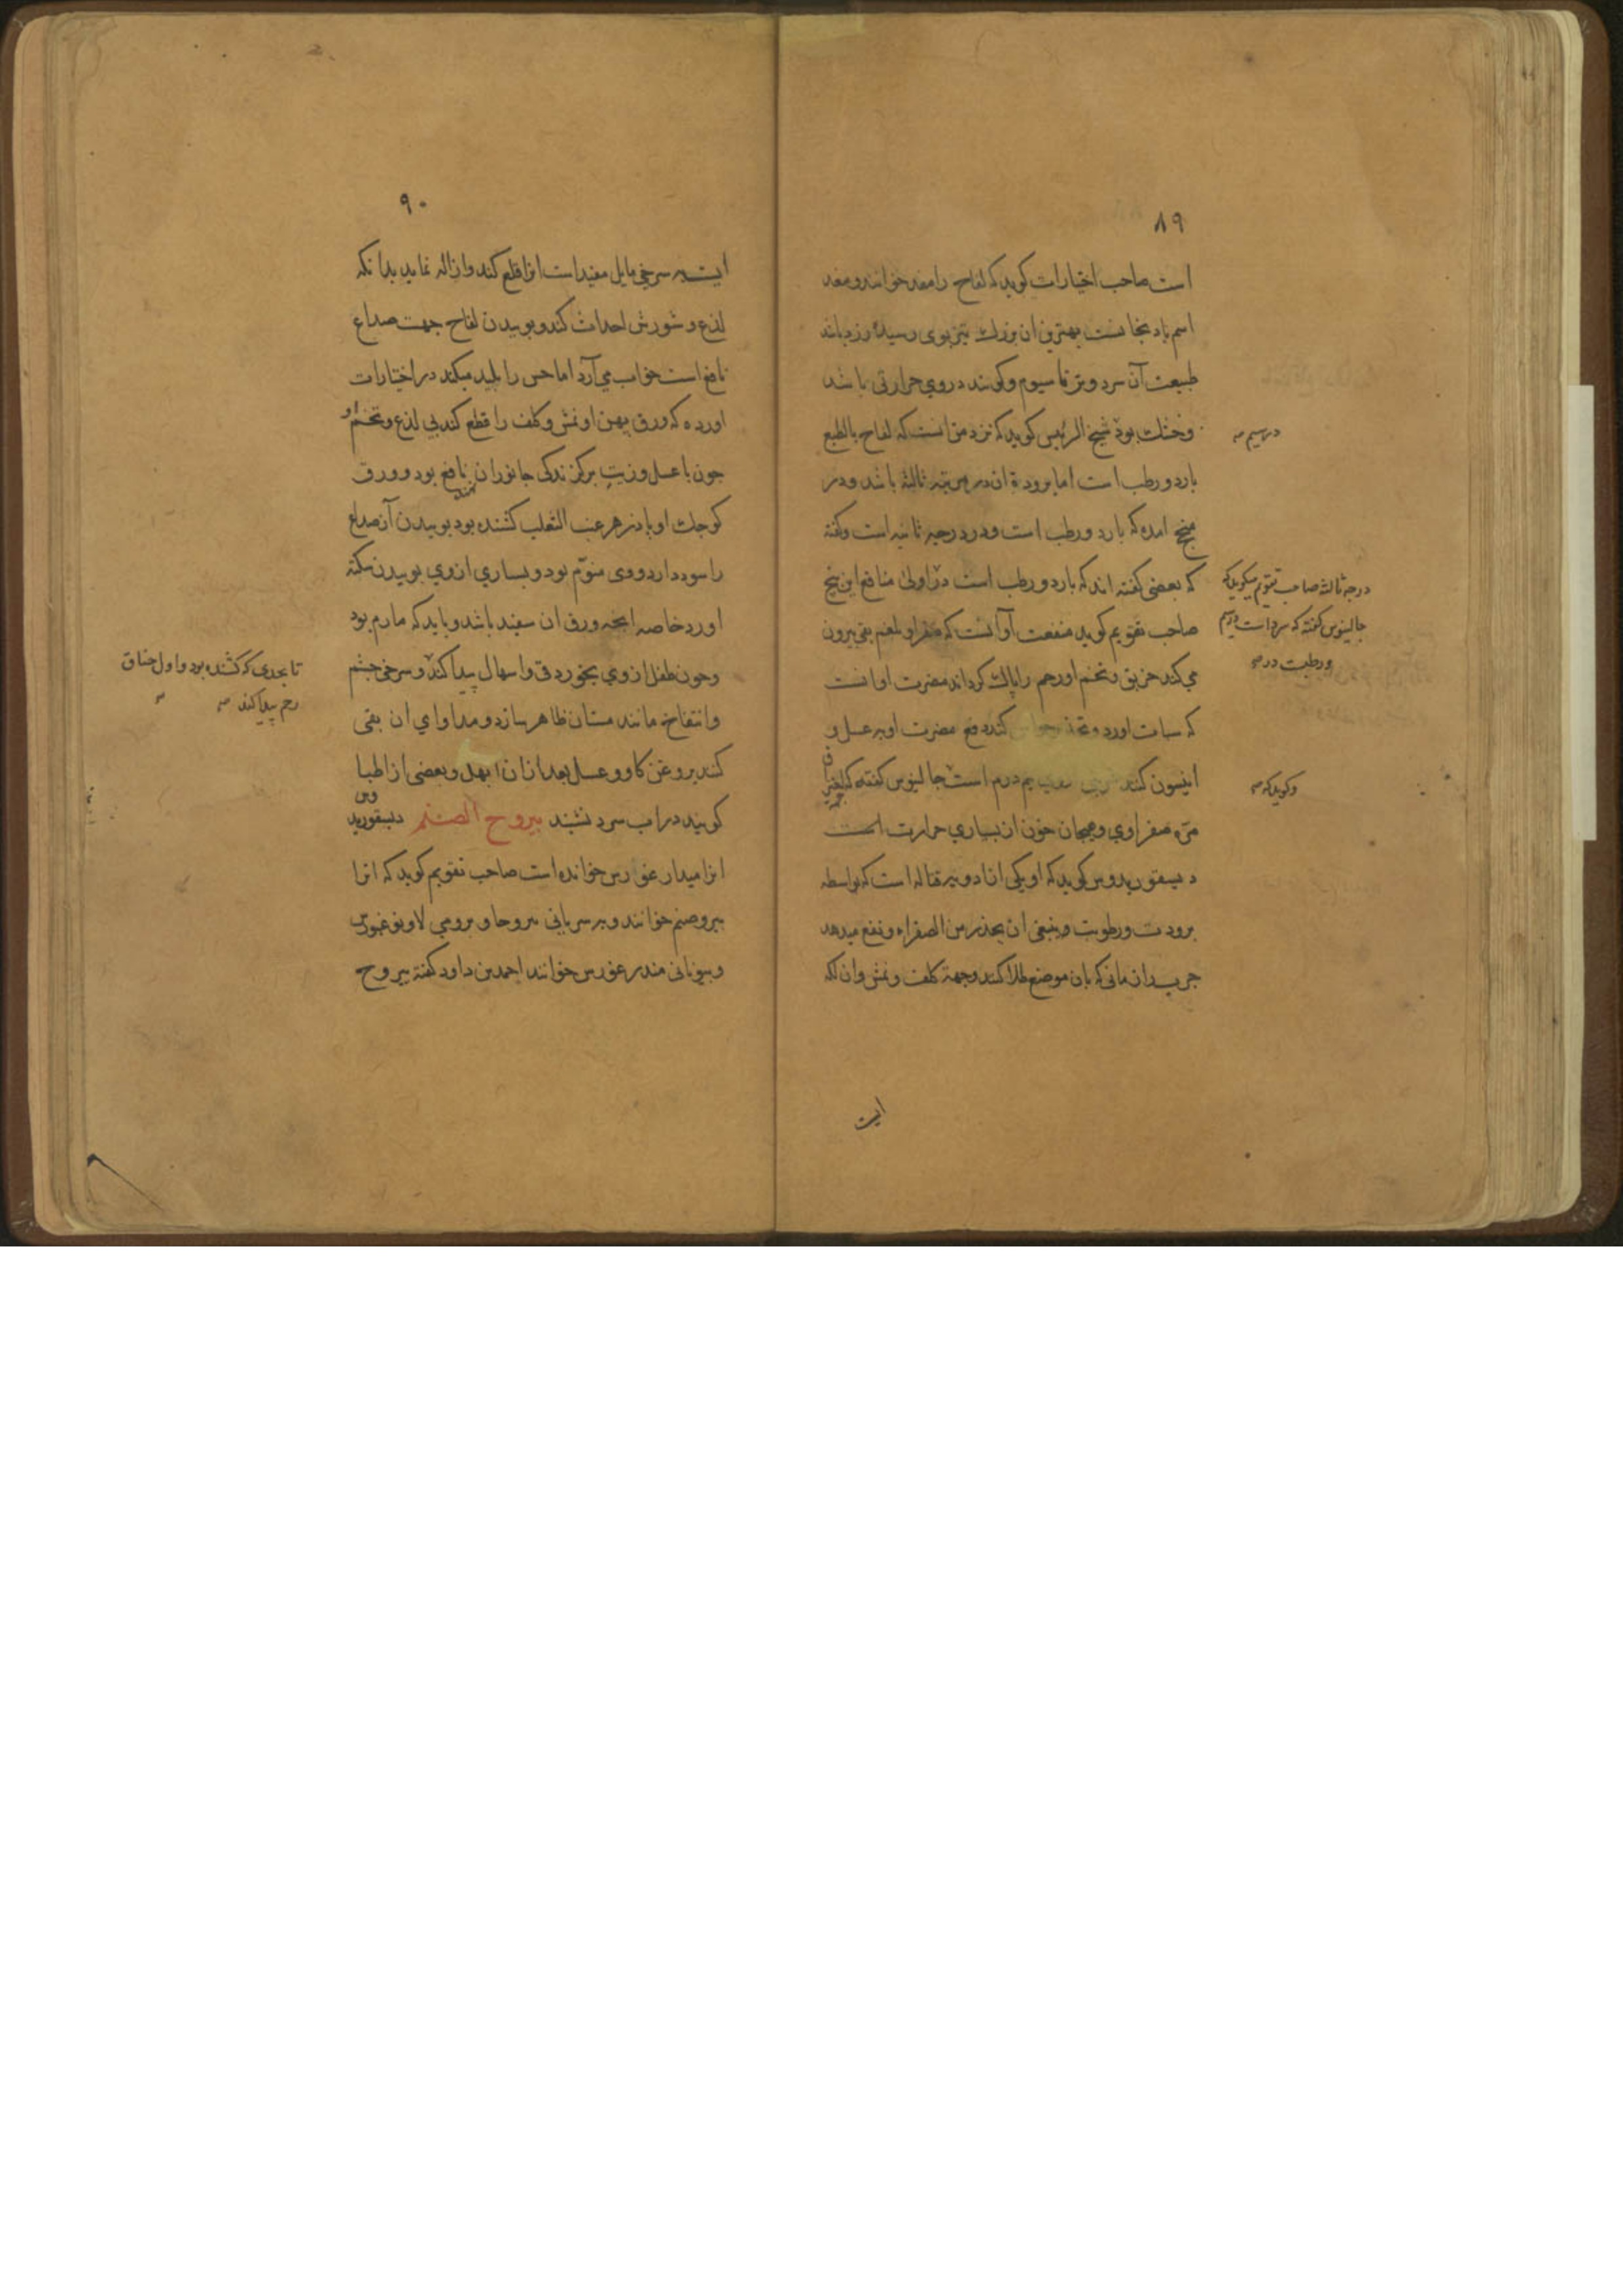 ٨٩
است صاحب اختیارات کوید که لفاح را مغد خوانند و مغد
اسم بادنجانست بهترین ان بزرك تیزبوی رسیدهٔ زرد باشد
طبیعت آن سرد و تر تا سیوم و کویند در وي حرارتی باشد
و خشك بود شیخ الرئیس کوید که نزد من انست که لفاح بالطبع
بارد و رطب است اما برودة ان در مرتبه ثالثه باشد و در
امده که بارد و رطب است و در درجه ثانیه است وکفته
که بعضی کفته اند که بارد و رطب است در اولی منافع این بیخ
صاحب تقویم کوید منفعت او آنست که صفرا و بلغم بقی بیرون
می کند خربق و تخم او رحم را پاك کرداند مضرت او انست
که سبات اورد و کند دفع مضرت او به عسل و
انیسون کنند نیم درم است جالینوس کفته که
مرّه صفراوي و هیجان خون از بسیاري حرارت است
دیسقوریدوس کوید که او یکی از ادویه قتاله است که بواسطه
برودت و رطوبت و ینبغی ان یحذر من الصفراء و نفع میدهد
جرب را زمانی که بان موضع طلا کنند و جهة کلف و نمش و ان لکه
ایست
در سیم
درجه ثالثه صاحب تقویم میکوید که
جالینوس کفته که سرد است در سیم
و رطبست در
و کوید که
٩٠
ایست به سرخی مایل مفید است انرا قلع کند و ازاله نماید بدانکه
لذع و شورش احداث کند و بوییدن لفاح جهت صداع
نافع است خواب می آرد اما حس را بلید میکند در اختیارات
اورده که ورق پهن او نمش و کلف را قطع کند بی لذع و تخم او
چون با عسل و زیت بر کزندکی جانوران نهند نافع بود و ورق
کوچك او بادزهر عنب الثعلب کشنده بود بوییدن آن صداع
را سود دارد و وی منوّم بود و بسیاري از وي بوییدن سکته
اورد خاصه انچه ورق ان سفید باشد و باید که مارم بود
و چون طفل از وي بخورد قی و اسهال پیدا کند و سرخی چشم
و انتفاخ مانند مستان ظاهر سازد و مداواي ان بقی
کنند بروغن کاو و عسل بعد از ان ابهل و بعضی از اطبا
کویند در اب سرد نشینند یبروح الصنم دیسقوریدوس
انرا میدارغورس خوانده است صاحب تقویم کوید که انرا
یبروصنم خوانند و به سریانی یبروحا و برومی
و بیونانی مندرغورس خوانند احمد بن داود کفته یبروح
تا بحدی که کشنده بود و اول خناق
رحم پیدا کند